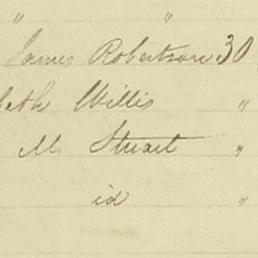 " "
James Robertson 30
beth Willis "
M. Stuart "
id "